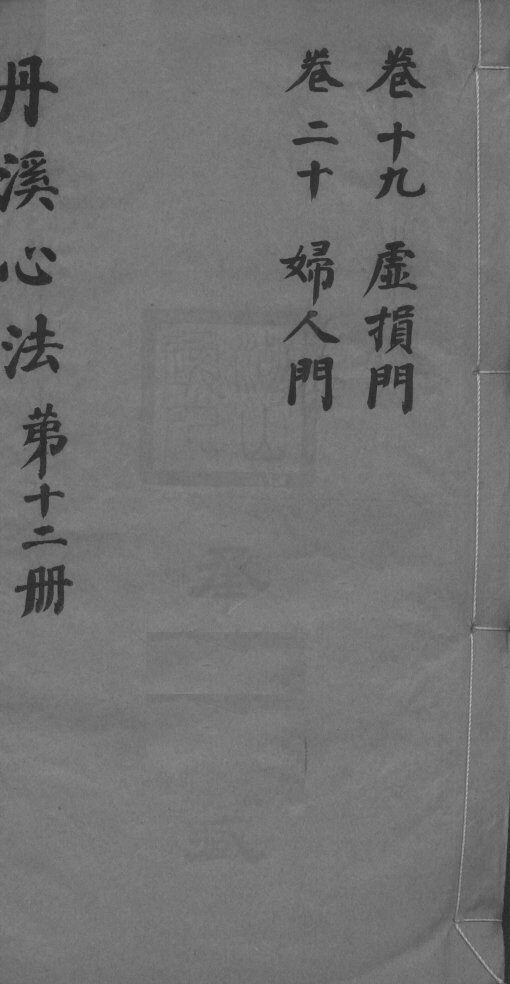 卷十九 虛損門
卷二十 婦人門
丹溪心法 苐十二册